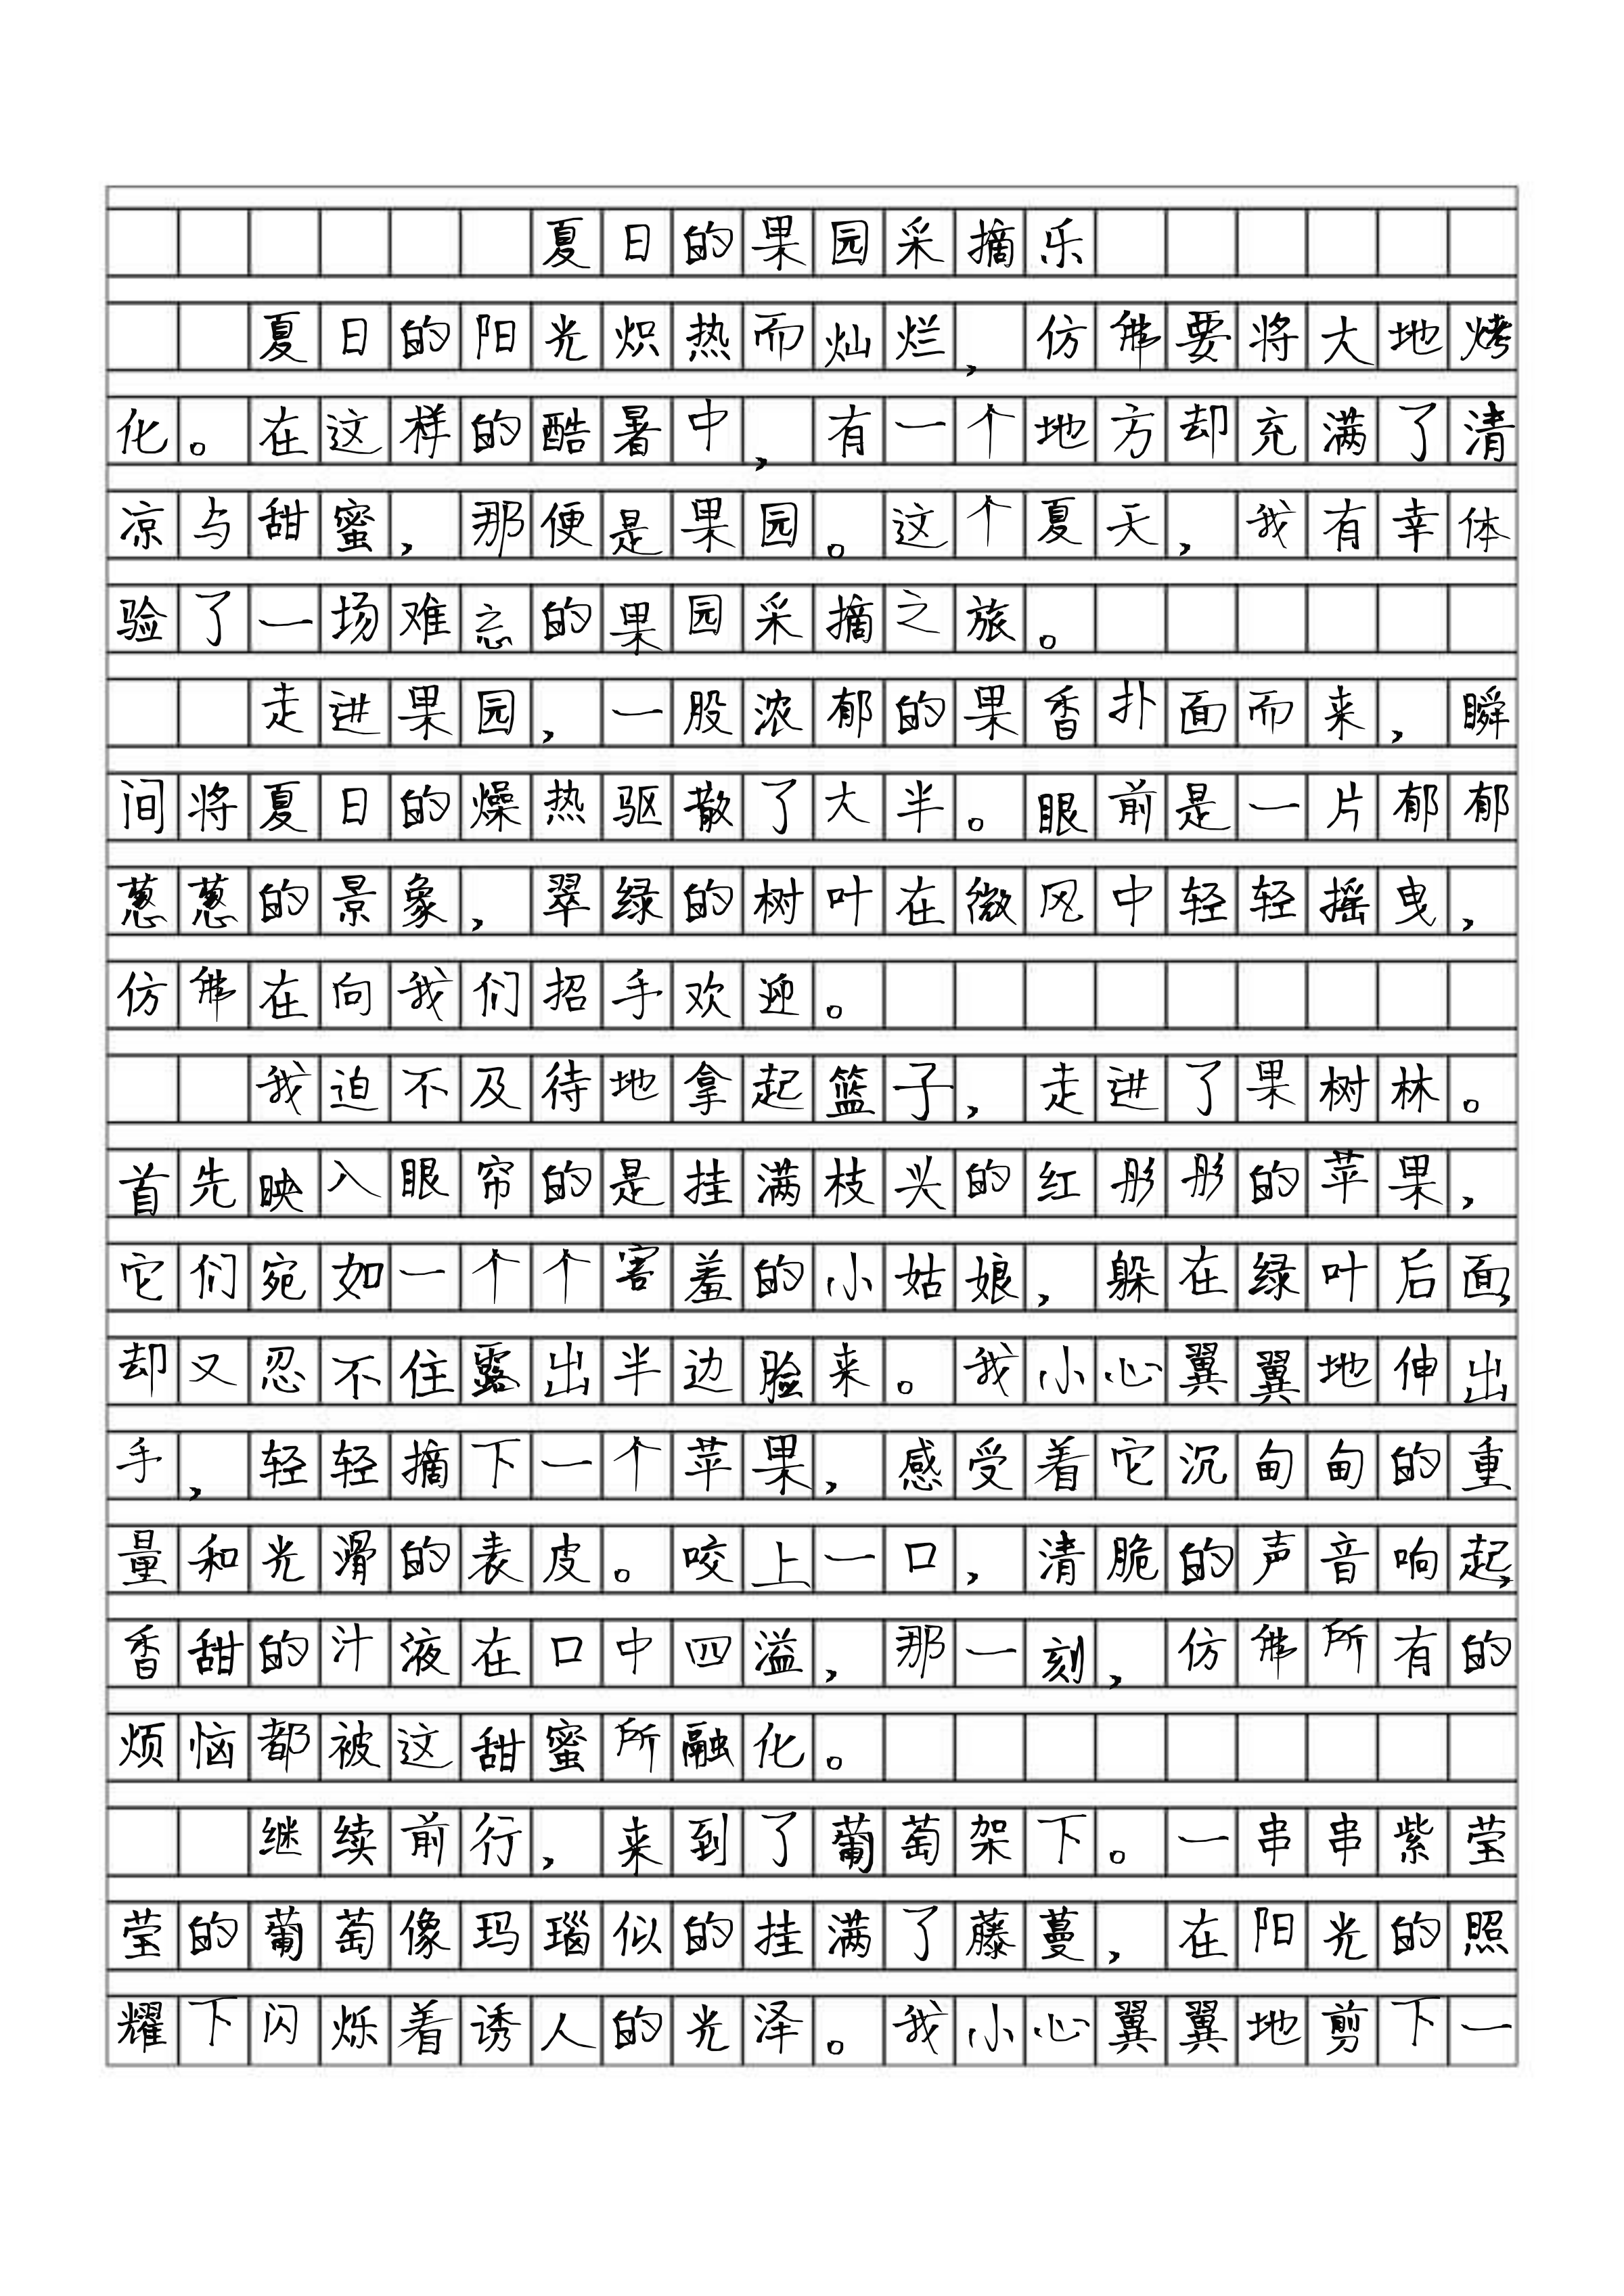 夏日的果园采摘乐
夏日的阳光炽热而灿烂，仿佛要将大地烤
化。在这样的酷暑中，有一个地方却充满了清
凉与甜蜜，那便是果园。这个夏天，我有幸体
验了一场难忘的果园采摘之旅。
走进果园，一股浓郁的果香扑面而来，瞬
间将夏日的燥热驱散了大半。眼前是一片郁郁
葱葱的景象，翠绿的树叶在微风中轻轻摇曳，
仿佛在向我们招手欢迎。
我迫不及待地拿起篮子，走进了果树林。
首先映入眼帘的是挂满枝头的红彤彤的苹果，
它们宛如一个个害羞的小姑娘，躲在绿叶后面，
却又忍不住露出半边脸来。我小心翼翼地伸出
手，轻轻摘下一个苹果，感受着它沉甸甸的重
量和光滑的表皮。咬上一口，清脆的声音响起，
香甜的汁液在口中四溢，那一刻，仿佛所有的
烦恼都被这甜蜜所融化。
继续前行，来到了葡萄架下。一串串紫莹
莹的葡萄像玛瑙似的挂满了藤蔓，在阳光的照
耀下闪烁着诱人的光泽。我小心翼翼地剪下一